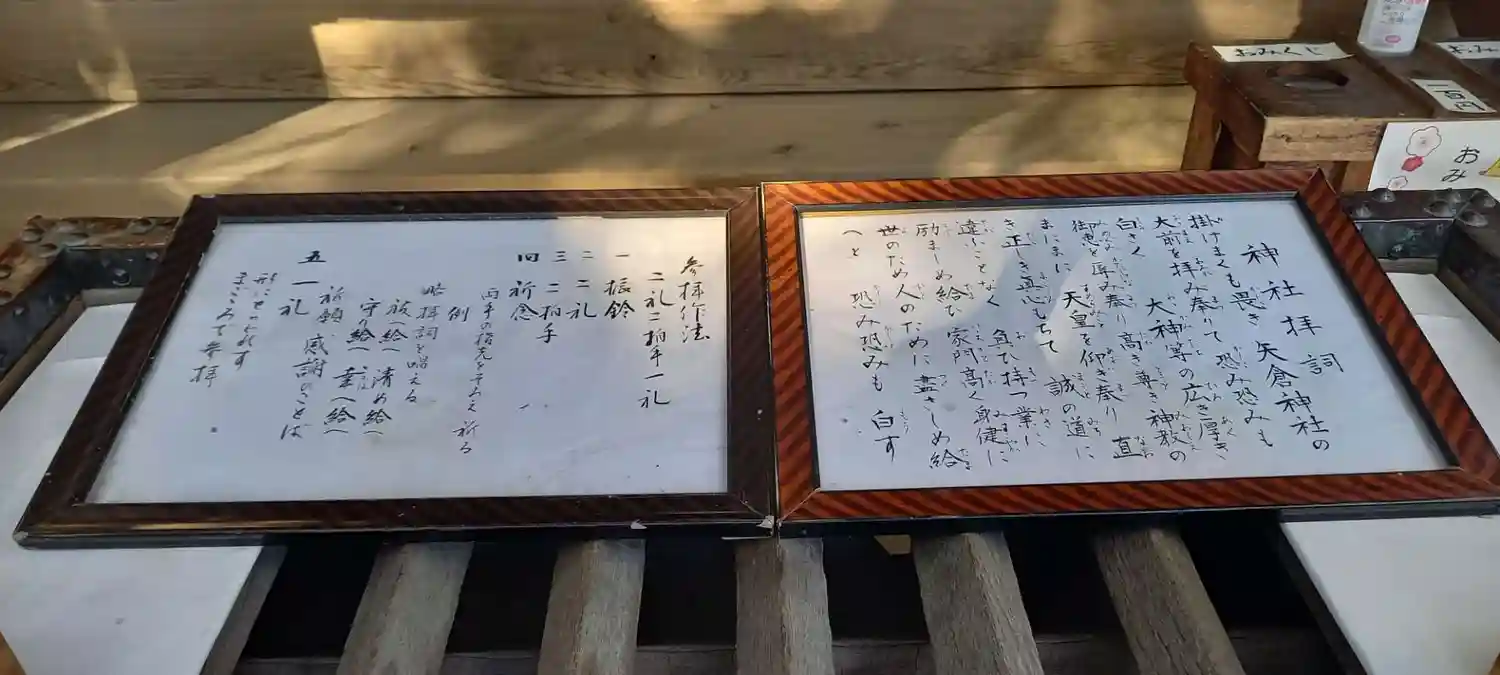 神社拝詞
掛けまくも畏き 矢倉神社の
大前を拝み奉りて 恐み恐みも
白さく 大神等の広き厚き
御恵を辱み奉り 高き尊き神教の
まにまに 天皇を仰ぎ奉り 直
き正しき真心もちて 誠の道に
違ふことなく 負ひ持つ業に
励ましめ給ひ 家門高く 身健に
世のため人のために 盡さしめ給
へと 恐み恐みも 白す
参拝作法
二礼二拍手一礼
一 振鈴
二 二礼
三 二拍手
四 祈念
両手の指先をそろえ祈る
例
略拝詞を唱える
祓へ給へ 清め給へ
守り給へ 幸へ給へ
祈願 感謝のことば
五 一礼
まごころで参拝
おみくじ
一百円
おみ